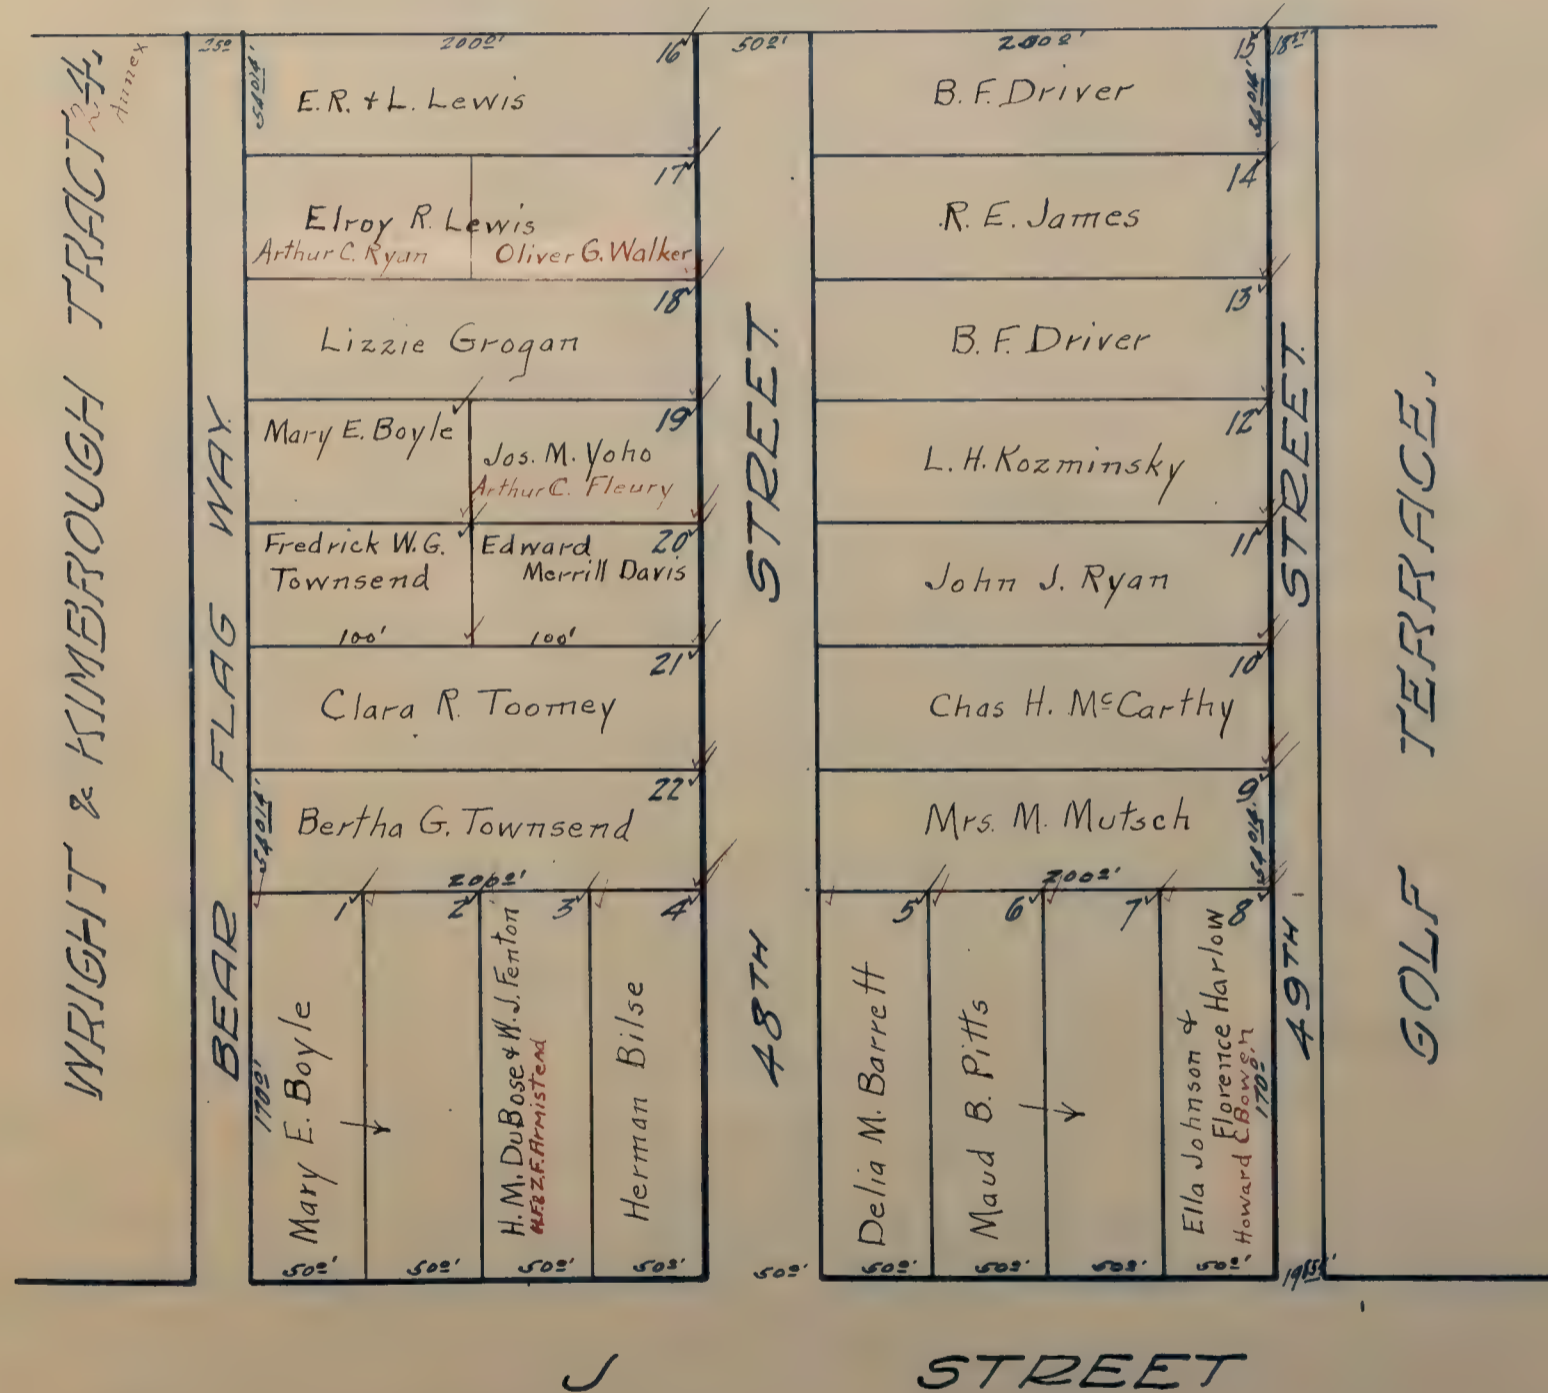 WRIGHT & KIMBROUGH TRACT 24,
Annex
BEAR FLAG WAY.
25⁰
200⁰'
16
54.014'
E.R. + L. Lewis
17
Elroy R. Lewis
Arthur C. Ryan
Oliver G. Walker
18
Lizzie Grogan
19
Mary E. Boyle
Jos. M. Yoho
Arthur C. Fleury
20
Fredrick W.G.
Townsend
100'
Edward
Merrill Davis
100'
21
Clara R. Toomey
22
54.014'
Bertha G. Townsend
200⁰'
1
Mary E. Boyle
170⁰'
50⁰'
2
50⁰'
3
H. M. DuBose & W. J. Fenton
H.F.& Z.F. Armistead
50⁰'
4
Herman Bilse
50⁰'
50⁰'
48TH STREET.
50⁰'
200⁰'
15
54.014'
B. F. Driver
14
R. E. James
13
B. F. Driver
12
L. H. Kozminsky
11
John J. Ryan
10
Chas H. McCarthy
9
54.014'
Mrs. M. Mutsch
200⁰'
5
Delia M. Barrett
50⁰'
6
Maud B. Pitts
50⁰'
7
50⁰'
8
Ella Johnson &
Florence Harlow
Howard C. Bowen
170⁰'
50⁰'
49TH STREET.
GOLF TERRACE,
J STREET